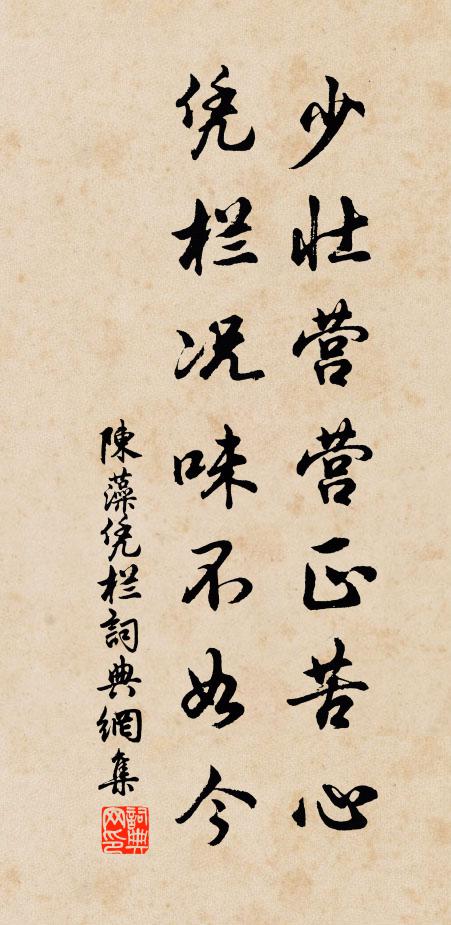 少壮营营正苦心
凭栏况味不如今
陳藻凭栏詞典網集
詞典网印